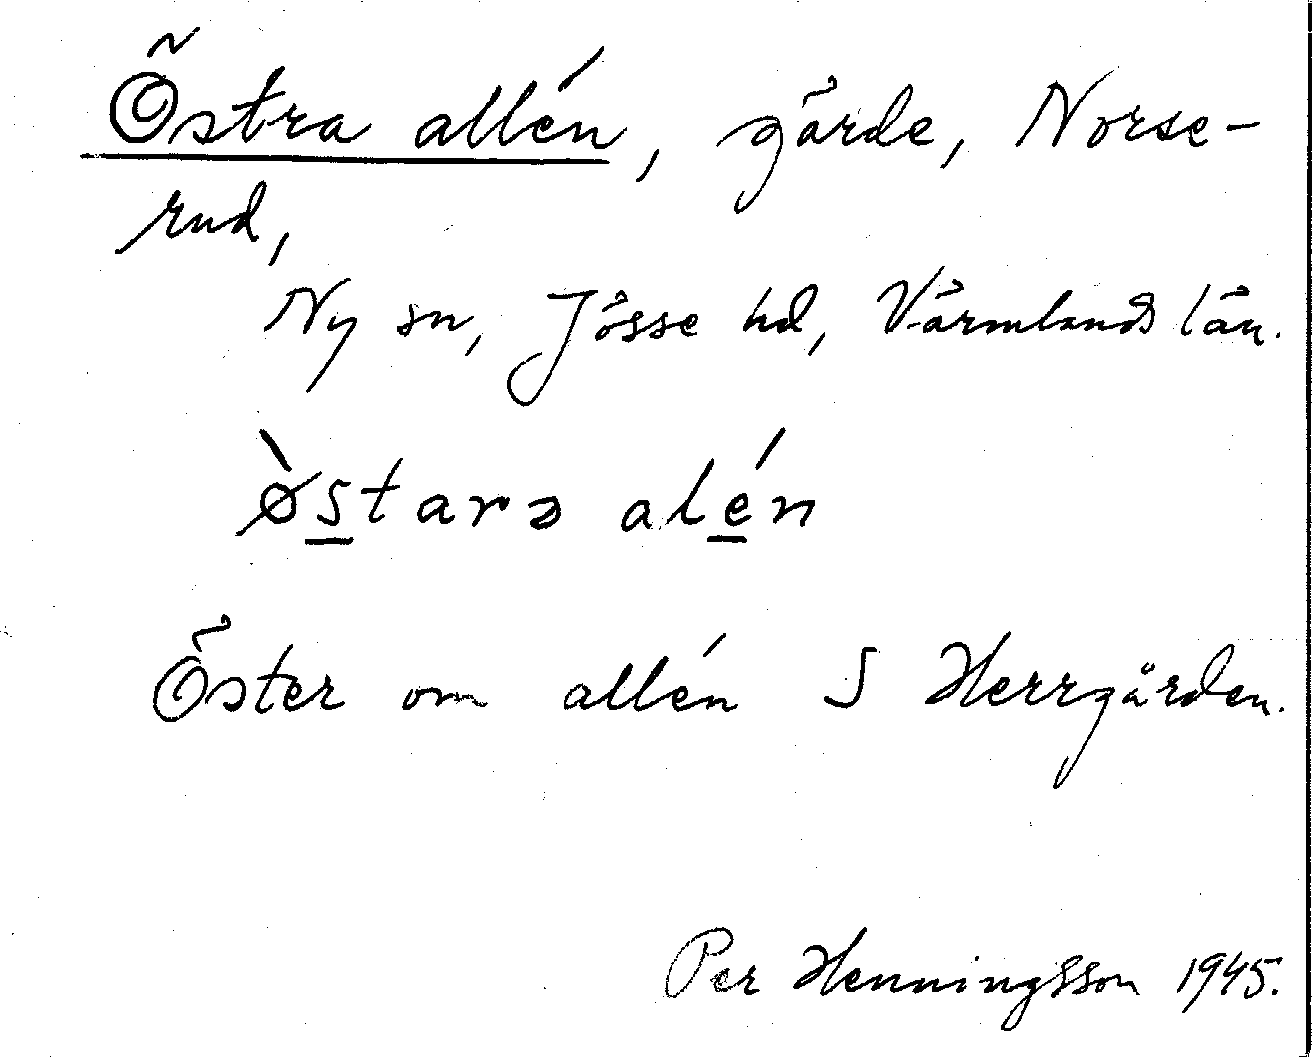 Östra allén, gärde, Norse-
rud,
Ny sn, Jösse hd, Värmlands län.
ø̀s̲tarə alé̲n
Öster om allén S Herrgården.
Per Henningsson 1945.